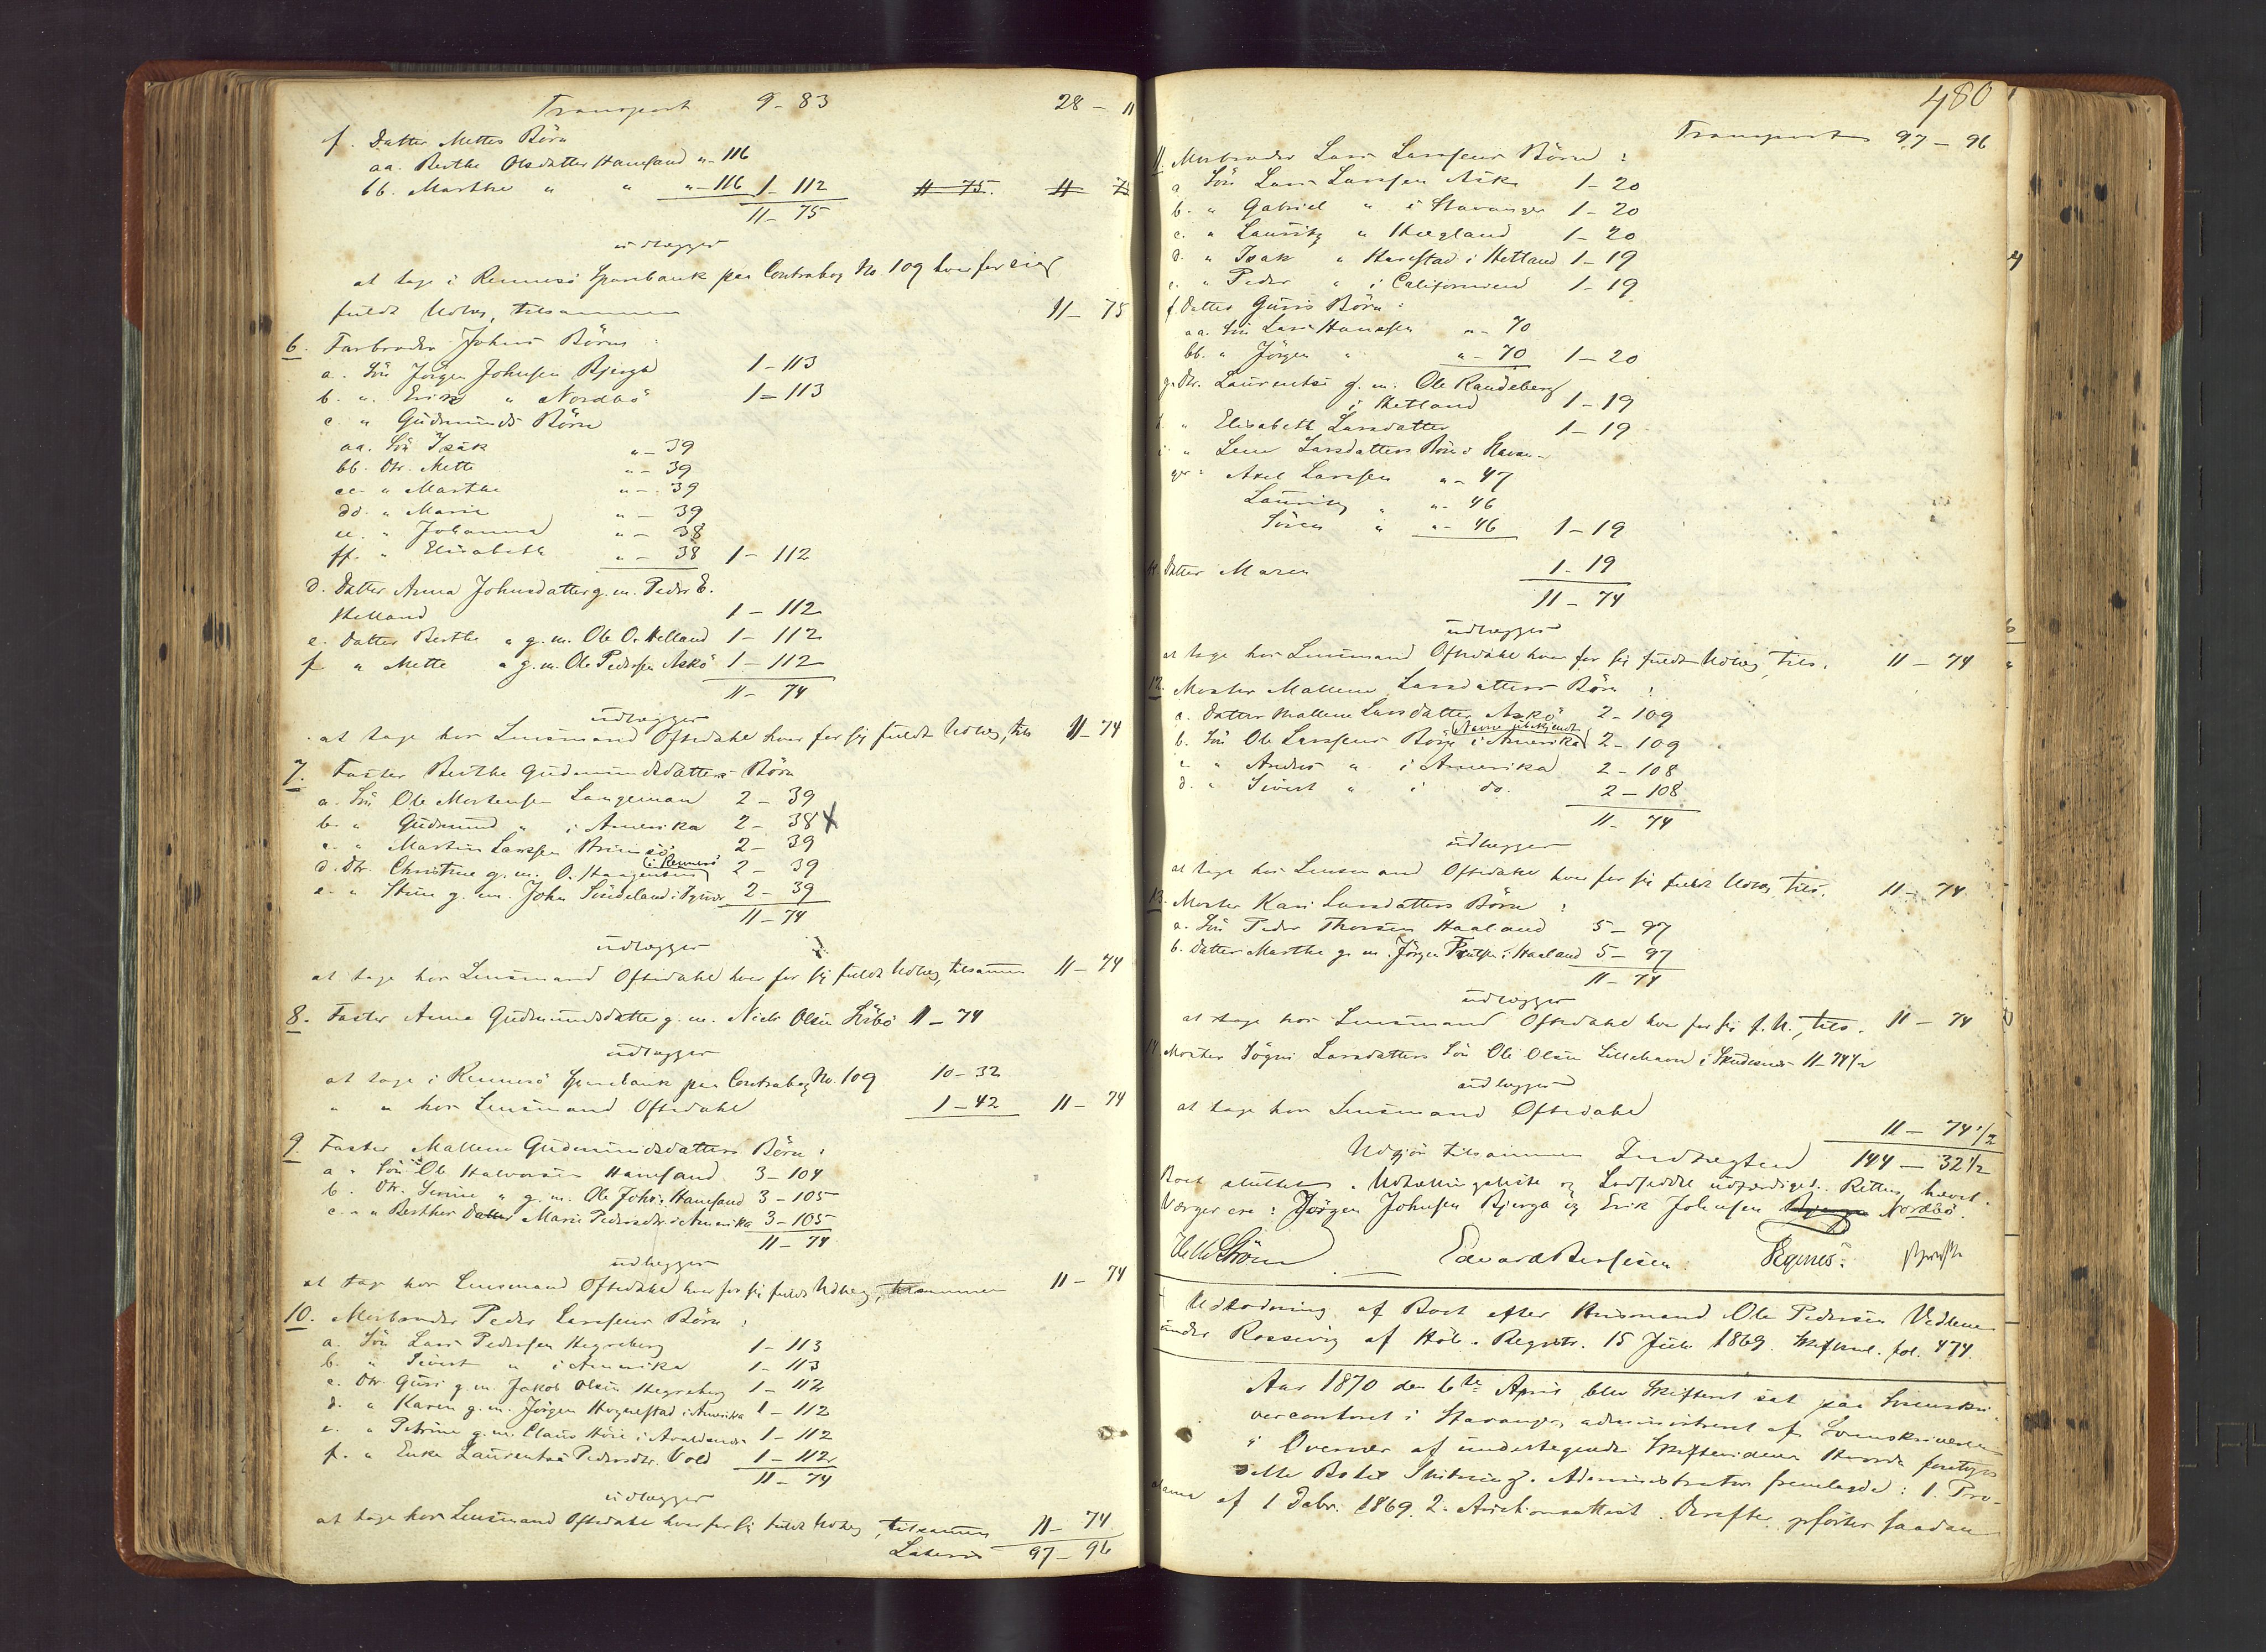 Transport 9 - 83 28 - "
f. Datter Mettes Börn
aa. Berthe Olsdatter Hanasand " - 116
bb. Marthe " " " - 116 1 - 112 11 - 75. 11 75
11 - 75
udlægges
at tage i Rennesö Sparebank paa Contrabog No. 109 hver for sig
fuldt Udlæg, tilsammen 11 - 75
6. Farbroder Johns Börn :
a. Sön Jörgen Johnsen Bjerga 1 - 113
b. " Erik " Nordbö 1 - 113
c. " Gudmunds Börn
aa. Sön Isak " - 39
bb. Dtr. Mette " - 39
cc. " Marthe " - 39
dd. " Marie " - 39
ee. " Johanna " - 38
ff. " Elisabeth " - 38 1 - 112
d. Datter Anna Johnsdatter g. m. Peder E.
Helland 1 - 112
e. Datter Berthe " g. m. Ole O. Helland 1 - 112
f. " Mette " g. m. Ole Pedersen Askö 1 - 112
11 - 74
udlægges
at tage hos Lensmand Oftedahl hver for sig fuldt Udlæg, tils 11 - 74
7. Faster Berthe Gudmundsdatters Börn
a. Sön Ole Mortensen Langeman 2 - 39
b. " Gudmund " i Amerika 2 - 38 X
c. " Martin Larssen Brimsö 2 - 39
d. Dtr. Christine g. m. O. i Rennesö 2 - 39
e. " Stine g. m. John 2 - 39
11 - 74
udlægges
at tage hos Lensmand Oftedahl hver for sig fuldt Udlæg, tilsammen 11 - 74
8. Faster Anna Gudmundsdatter g. m. Niels Olsen Sörbö 11 - 74
udlægges
at tage i Rennesö Sparebank paa Contrabog No. 109 10 - 32
" " hos Lensmand Oftedahl 1 - 42 11 - 74
9. Faster Mallene Gudmundsdatters Börn :
a. Sön Ole Halvorsen Hanasand 3 - 104
b. Dtr. Serine " g. m. Ole Johs. Hanasand 3 - 105
c. " Berthes Datter Marie Pedersdtr. i Amerika 3 - 105
11 - 74
udlægges
at tage hos Lensmand Oftedahl hver for sig fuldt Udlæg, tilsammen 11 - 74
10. Morbroder Peder Larssens Börn :
a. Sön Lars Pedersen Hegreberg 1 - 113
b. " Sivert " i Amerika 1 - 113
c. Dtr. Guri g. m. Jakob Olsen Hegreberg 1 - 112
d. " Karen g. m. Jörgen Hognestad i Amerika 1 - 112
e. " Petrine g. m. Claus i 1 - 112
f. " Enke Laurentse Pedersdtr. Vold 1 - 112
11 - 74
udlægges
at tage hos Lensmand Oftedahl hver for sig fuldt Udlæg, tilsammen 11 - 74
Lateris 97 - 96
480
Transport 97 - 96
11. Morbroder Lars Larssens Börn :
a Sön Lars Larssen Ask 1 - 20
b. " Gabriel " i Stavanger 1 - 20
c. " Lauritz " Hægland 1 - 20
d. " Isak " Harestad i Hetland 1 - 19
e. " Peder " i Californien 1 - 19
f. Datter Guris Börn :
aa. Sön Lars Hanssen " - 70
bb. " Jörgen " " - 70 1 - 20
g. Dtr. Laurentse g. m. Ole Randeberg
i Hetland 1 - 19
h. " Elisabeth Larsdatter 1 - 19
i " Lene Larsdatters Börn i Stavan-
ger : Axel Larssen " - 47
Lauritz " " - 46
Sören " " - 46 1 - 19
Datter Maren 1 - 19
11 - 74
udlægges
at tage hos Lensmand Oftedahl hver for sig fuldt Udlæg, tils. 11 - 74
12. Moster Mallene Larsdatters Börn :
a. Datter Mallene Larsdatter Askö 2 - 109
b. Sön Ole Larssens Börn (Navne ubekjendt) i Amerika 2 - 109
c " Anders " i Amerika 2 - 108
d. " Sivert " i do. 2 - 108
11 - 74
udlægges
at tage hos Lensmand Oftedahl hver for sig fuldt Udlæg, tils. 11 - 74
13. Moster Kari Larsdatters Börn :
a. Sön Peder Thorsen Haaland 5 - 97
b. Datter Marthe g. m. Jörgen i Haaland 5 - 97
11 - 74
udlægges
at tage hos Lensmand Oftedahl hver for sig f. U., tils. 11 - 74
14. Moster Sögni Larsdatters Sön Ole Olsen Lillehavn i Skudesnes 11 - 74 1/2
udlægges
at tage hos Lensmand Oftedahl
11 - 74 1/2
Udgjör tilsammen Indtægten 144 - 32 1/2
Boet sluttet. Udlællingsliste og Lodsedler udfærdiget. Retten hævet.
Værger ere : Jörgen Johnsen Bjerga og Erik Johnsen Bjerga Nordbö.
Ström Edvard Berntsen.
Udlodning af Boet efter Husmand Ole Pedersen Vedlene
under Rossevig af Höle. Registr. 15 Juli 1869. Skiftebl. fol. 474.
Aar 1870 den 6te April blev Skifteret sat paa Sorenskri-
vercontoret i Stavanger, administreret af Sorenskriveren
i Overvær af undertegnede Skiftevidner. Hvorda foretoges
dette Bo til Slutning. Administrator fremlagde : 1. Pro-
clama af 1 Dcbr. 1869. 2. Auctionsattest. Derefter opförtes saadan